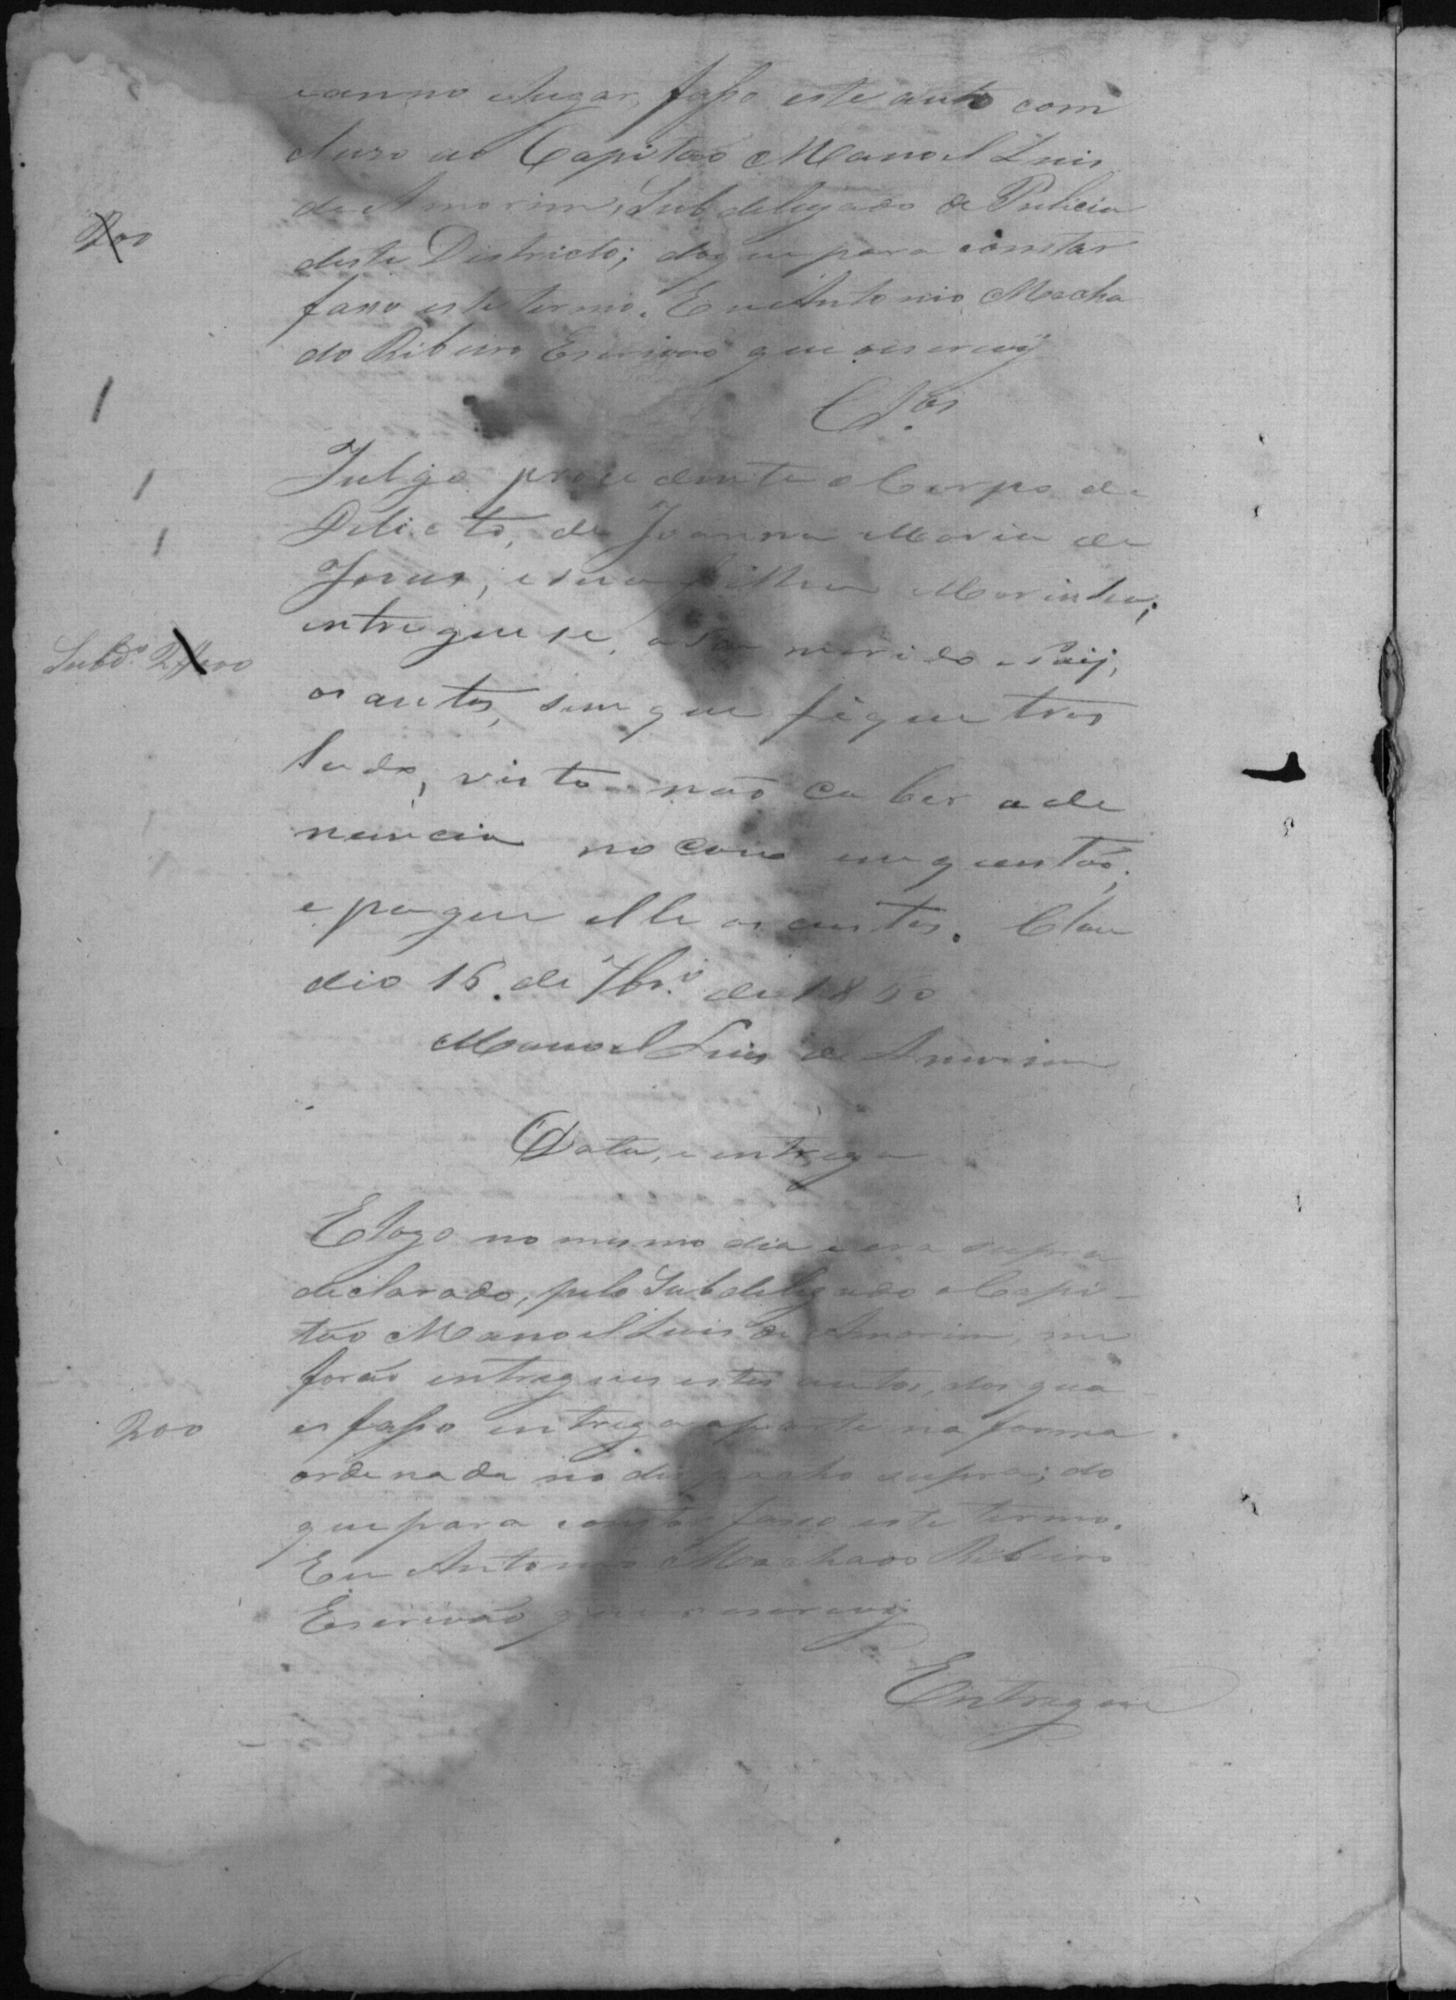 e anno e lugar, fasso este auto com
cluzo ao Capitaõ Manoel Luis
de Amorim, Subdelegado de Pulicia
200
deste Districto; do que para constar
fasso este termo. Eu Antonio Macha
do Ribeiro Escrivaõ que o escrevÿ
Clos
Julgo procedente o Corpo de
Delicto, de Joanna Maria de
Jesus, e sua filha Marinha;
entregue se, a seu marido e Paij,
Subdo. 2#400
os autos, sem que fique tres
lado, visto naõ caber a de
nuncia no cazo em questaõ;
e pague elle as custas. Clau
dio 16 de 7bro. de 1850
Manoel Luis de Amorim
Data, e entrega
E logo no mesmo dia e era supra
declarado, pelo Subdelegado o Capi-
taõ Manoel Luis de Amorim, me
foraõ entregues estes autos, dos qua-
200
es fasso entrega a parte na forma
ordenada no despacho supra; do
que para constar fasso este termo.
Eu Antonio Machado Ribeiro
Escrivaõ que o escrevÿ
Entregue